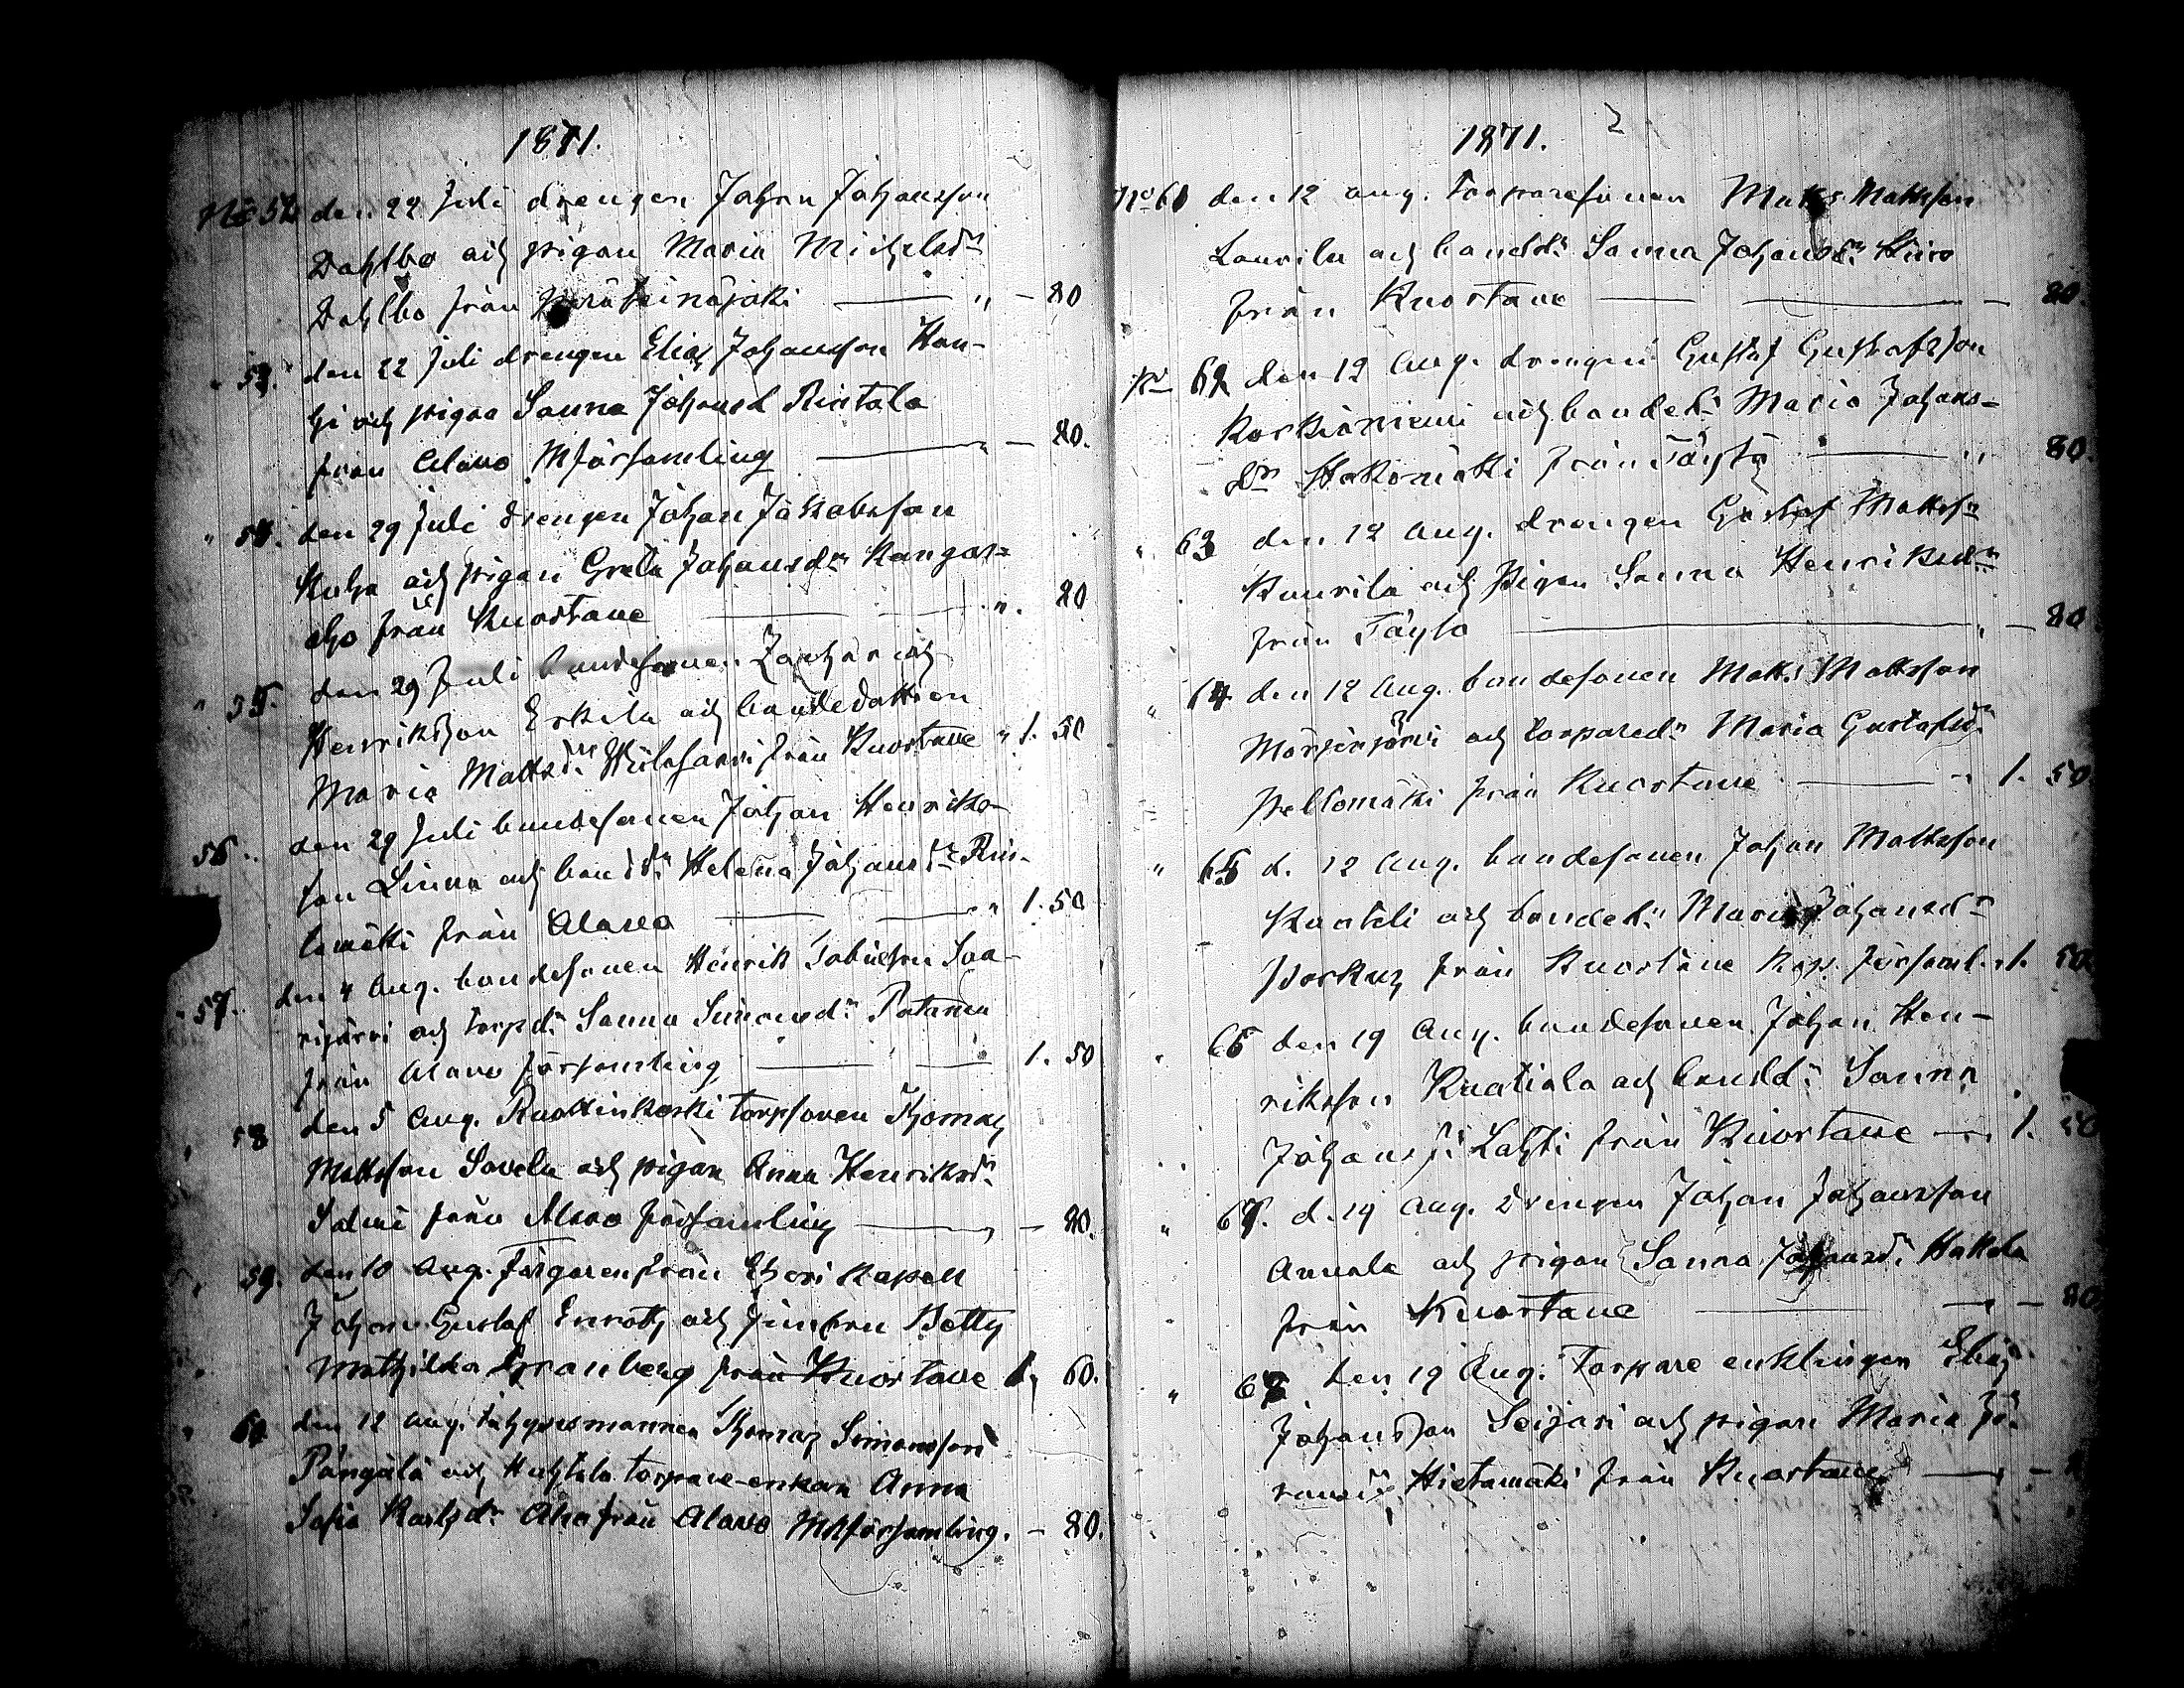 1871.
No 52 den 22 Juli drengen Johan Johansson
Dahlbo och pigan Maria Michelsdr
Dahlbo från Peräseinäjoki — " — 80
" 53. den 22 Juli drengen Elias Johansson Kan-
och pigan Sanna Johansd Rintala
från Alavo Mförsamling — " — 80.
" 54. den 29 Juli drengen Johan Jakobsson
Kuha och pigan Greta Johansdr Kangas=
aho från Kuortane — ". 80
" 55. den 29 Juli bondesonen Zacharias
Henriksson Erkila och bondedottren
Maria Mattsdr från Kuortane " 1. 50
56. den 29 Juli bondesonen Johan Henriks-
son Linna och bonddr Helena Johansdr Rin-
tamäki från Alavo — " 1. 50
" 57. den 4 Aug. bondesonen Henrik Tobiesson Saa-
rijärvi och torpdr Sanna Simonsdr Patanen
från Alavo församling — 1. 50
" 58 den 5 Aug. Ruottinkoski torpsonen Thomas
Mattsson Savela och pigan Anna Henriksdr
Salmi från Alavo församling — — 80.
" 59. den 10 Aug. Färgaren från Etseri Kapell
Johan Gustaf Enroth och jungfru Betty
Mathilda Granberg från Kuortane 1, 60.
" 60 den 12 Aug. Thomas Simonsson
Pängälä och Huhtala torpare-enkan Anna
Sofia Karlsdr Aho från Alavo Mförsamling. — 80.
1871. 2
No 61 den 12 aug. torparesonen Matts Mattsson
Laurila och bonddr Sanna Johansdr Kiiro
från Kuortane — — 80.
No 62 den 12 Aug. drengen Gustaf Gustafsson
Koskiniemi och bondedr Maria Johans=
dr Hakomäki från Töysä — " 80.
" 63 den 12 Aug. drengen Gustaf Mattsn
Kaurila och Pigan Sanna Henriksdr
från Töysä — " — 80
" 64 den 12 Aug. bondesonen Matts Mattsson
och torparedr Maria Gustafsdr
Peltomäki från Kuortane — " 1. 50.
" 65 d. 12 Aug. bondesonen Johan Mattsson
och bondedr Maria Johansdr
Porkus från Kuortane Kap. församl. " 1. 50
" 66 den 19 Aug. bondesonen Johan Hen-
riksson Kuatiala och bonddr Sanna
Johansdr Lahti från Kuortane — 1. 50
" 67. d. 19 Aug. Drengen Johan Johansson
Annala och pigan Sanna Johansdr Hakola
från Kuortane — — 80
" 68 den 19 Aug. Torpare enklingen Elias
Johansson Seijari och pigan Maria Jo-
hansdr Hietamäki från Kuortane — —